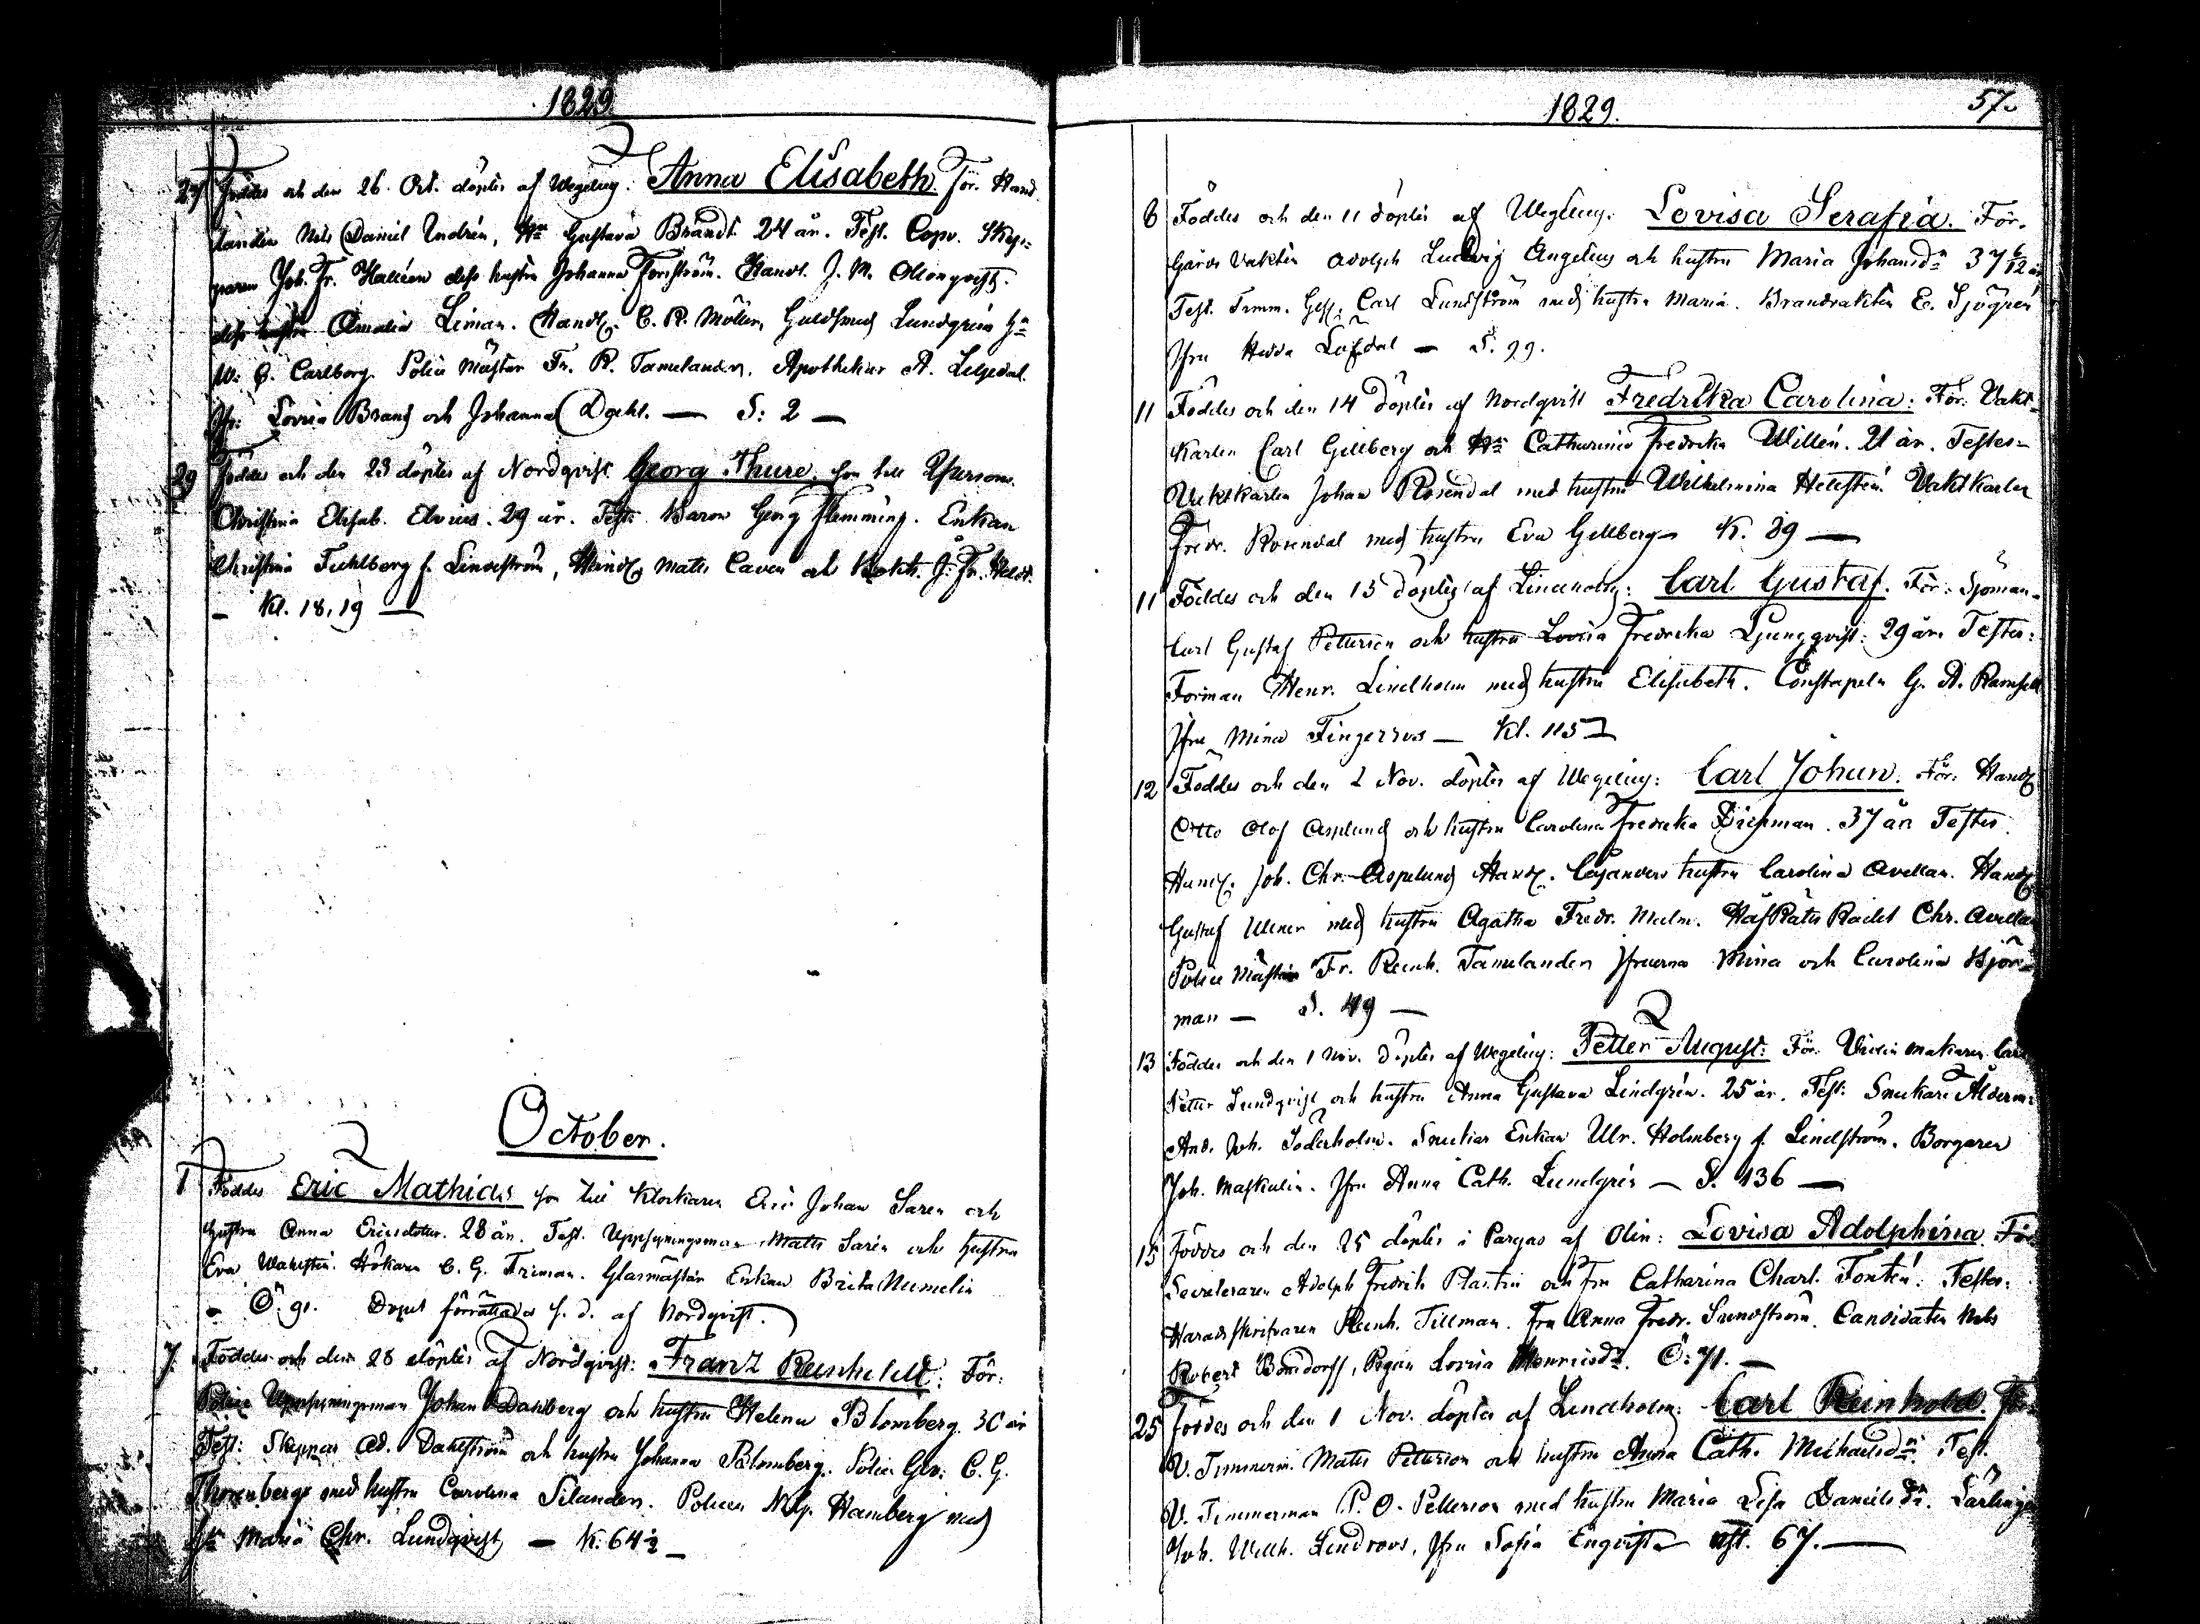 1829.
27 Föddes och den 26. Oct. döptes af Wegelius: Anna Elisabeth. För. Hand
landen Nils Daniel Andrén, Hu Gustava Brandt 24 år. Test. Copv. Skep-
paren Joh. Fr. Hallén dess hustru Johanna Forsström. Handl. J. M. Ollonqvist
dess hustru Amalia Liman. Handl. C. R. Möller, Guldsmed Lundgrén
W. G. Carlborg. Police Mästar Fr. R. Tamelander, Apothekar A.
Jfr: Lovisa Brand och Johanna Dahl. — S: 2 —
29 Föddes och den 23 döptes af Nordqvist Georg Thure, son till
Christina Elisab. Elvius. 29 år. Test: Baron Georg Flemming. Enkan
Christina Tuhlberg f. Lindström, Handl. Matts Caven och Bokh. J. Fr.
— Kl. 18, 19 —
October.
1 Föddes Eric Mathias son till Klockaren Eric Johan Saren och
hustru Anna Ericsdotter. 28 år. Test. Uppsyningsman Matts Sarén och hustru
Eva Wahlstén. Hökaren C. G. Friman. Glasmästar Enkan Brita Numelin
— Ö. 91. Dopet förrättades s. d. af Nordqvist.
7. Föddes och den 28 döptes af Nordqvist: Franz Reinholdt. För:
Police Uppsyningsman Johan Dahlberg och hustru Helena Blomberg. 30 år
Test: Skeppar Ad. Dahlström och hustru Johanna Blomberg. Police Gev: C. G.
Thorenberg med hustru Carolina Silander. Police N. G. Hamberg med
Hu Maria Chr. Lundqvist — K: 64½ —
1829.
57.
8 Föddes och den 11 döptes af Wegelius. Lovisa Serafia. För.
Gårds Vakten Adolph Ludvig Angelius och hustru Maria Johansdr 37 6/12 år
Test. Timm. Gess. Carl Lundström med hustru Maria. Brandvakten E. Sjögren
Jfru Hedda Löfdal — S. 99.
11 Föddes och den 14 döptes af Nordqvist Fredrika Carolina: För: Vakt-
Karlen Carl Gillberg och Hu Catharina Fredrika Willén. 21 år. Testes-
Vaktkarlen Johan Rosendal med hustru Wilhelmina Hellstén. Vaktkarlen
Fredr. Rosendal med hustru Eva Gillberg — K. 89 —
11 Föddes och den 15 döptes af Lindholm: Carl Gustaf. För: Sjöman-
Carl Gustaf Petterson och hustru Lovisa Fredrika Ljungqvist: 29 år. Testes:
Forman Henr. Lindholm med hustru Elisabeth. Constapeln G. A. Ramsell
Jfru Mina Fingerroos — Kl. 115 —
12 Föddes och den 2 Nov. döptes af Wegelius: Carl Johan. För: Handl
Otto Olof Asplund och hustru Carolina Fredrika Björkman. 37 år Testes
Handl. Joh. Chr. Aspelund Handl. Cajanders hustru Carolina Avellan. Handl
Gustaf Wener med hustru Agatha Fredr. Malm. HofRätts Rådet Chr. Avellan
Police Mästar Fr. Reinh. Tamelander Jfruerna Mina och Carolina Björk-
man — S. 49 —
13 Föddes och den 1 Nov. döptes af Wegelius: Petter August: För. Carl
Petter Lundqvist och hustru Anna Gustava Lindgrén. 25 år. Test: Snickare Ålderm:
And. Joh. Söderholm. Snickar Enkan Ulr. Holmberg f. Lindström. Borgaren
Joh. Maskulin. Jfru Anna Cath. Lundgrén — S. 136 —
15 Föddes och den 25 döptes i Pargas af Olin: Lovisa Adolphina. För
Secreteraren Adolph Fredrik Plantin och Fru Catharina Charl. Fontén. Testes:
Häradsskrifvaren Reinh. Tillman. Fru Anna Fredr. Sundström. Candidaten Nils
Robert Bonsdorff, Pigan Lovisa Henricsdr. Ö: 71. —
25 Föddes och den 1 Nov. döptes af Lindholm: Carl Reinhold. För:
V. Timmerm. Matts Petterson och hustru Anna Cath. Michaelsdr. Test.
V. Timmerman P. O. Petterson med hustru Maria Lisa Danielsdr. Lärlingen
Joh. Wilh. Lindroos, Jfru Sofia Engqvist — 67. —